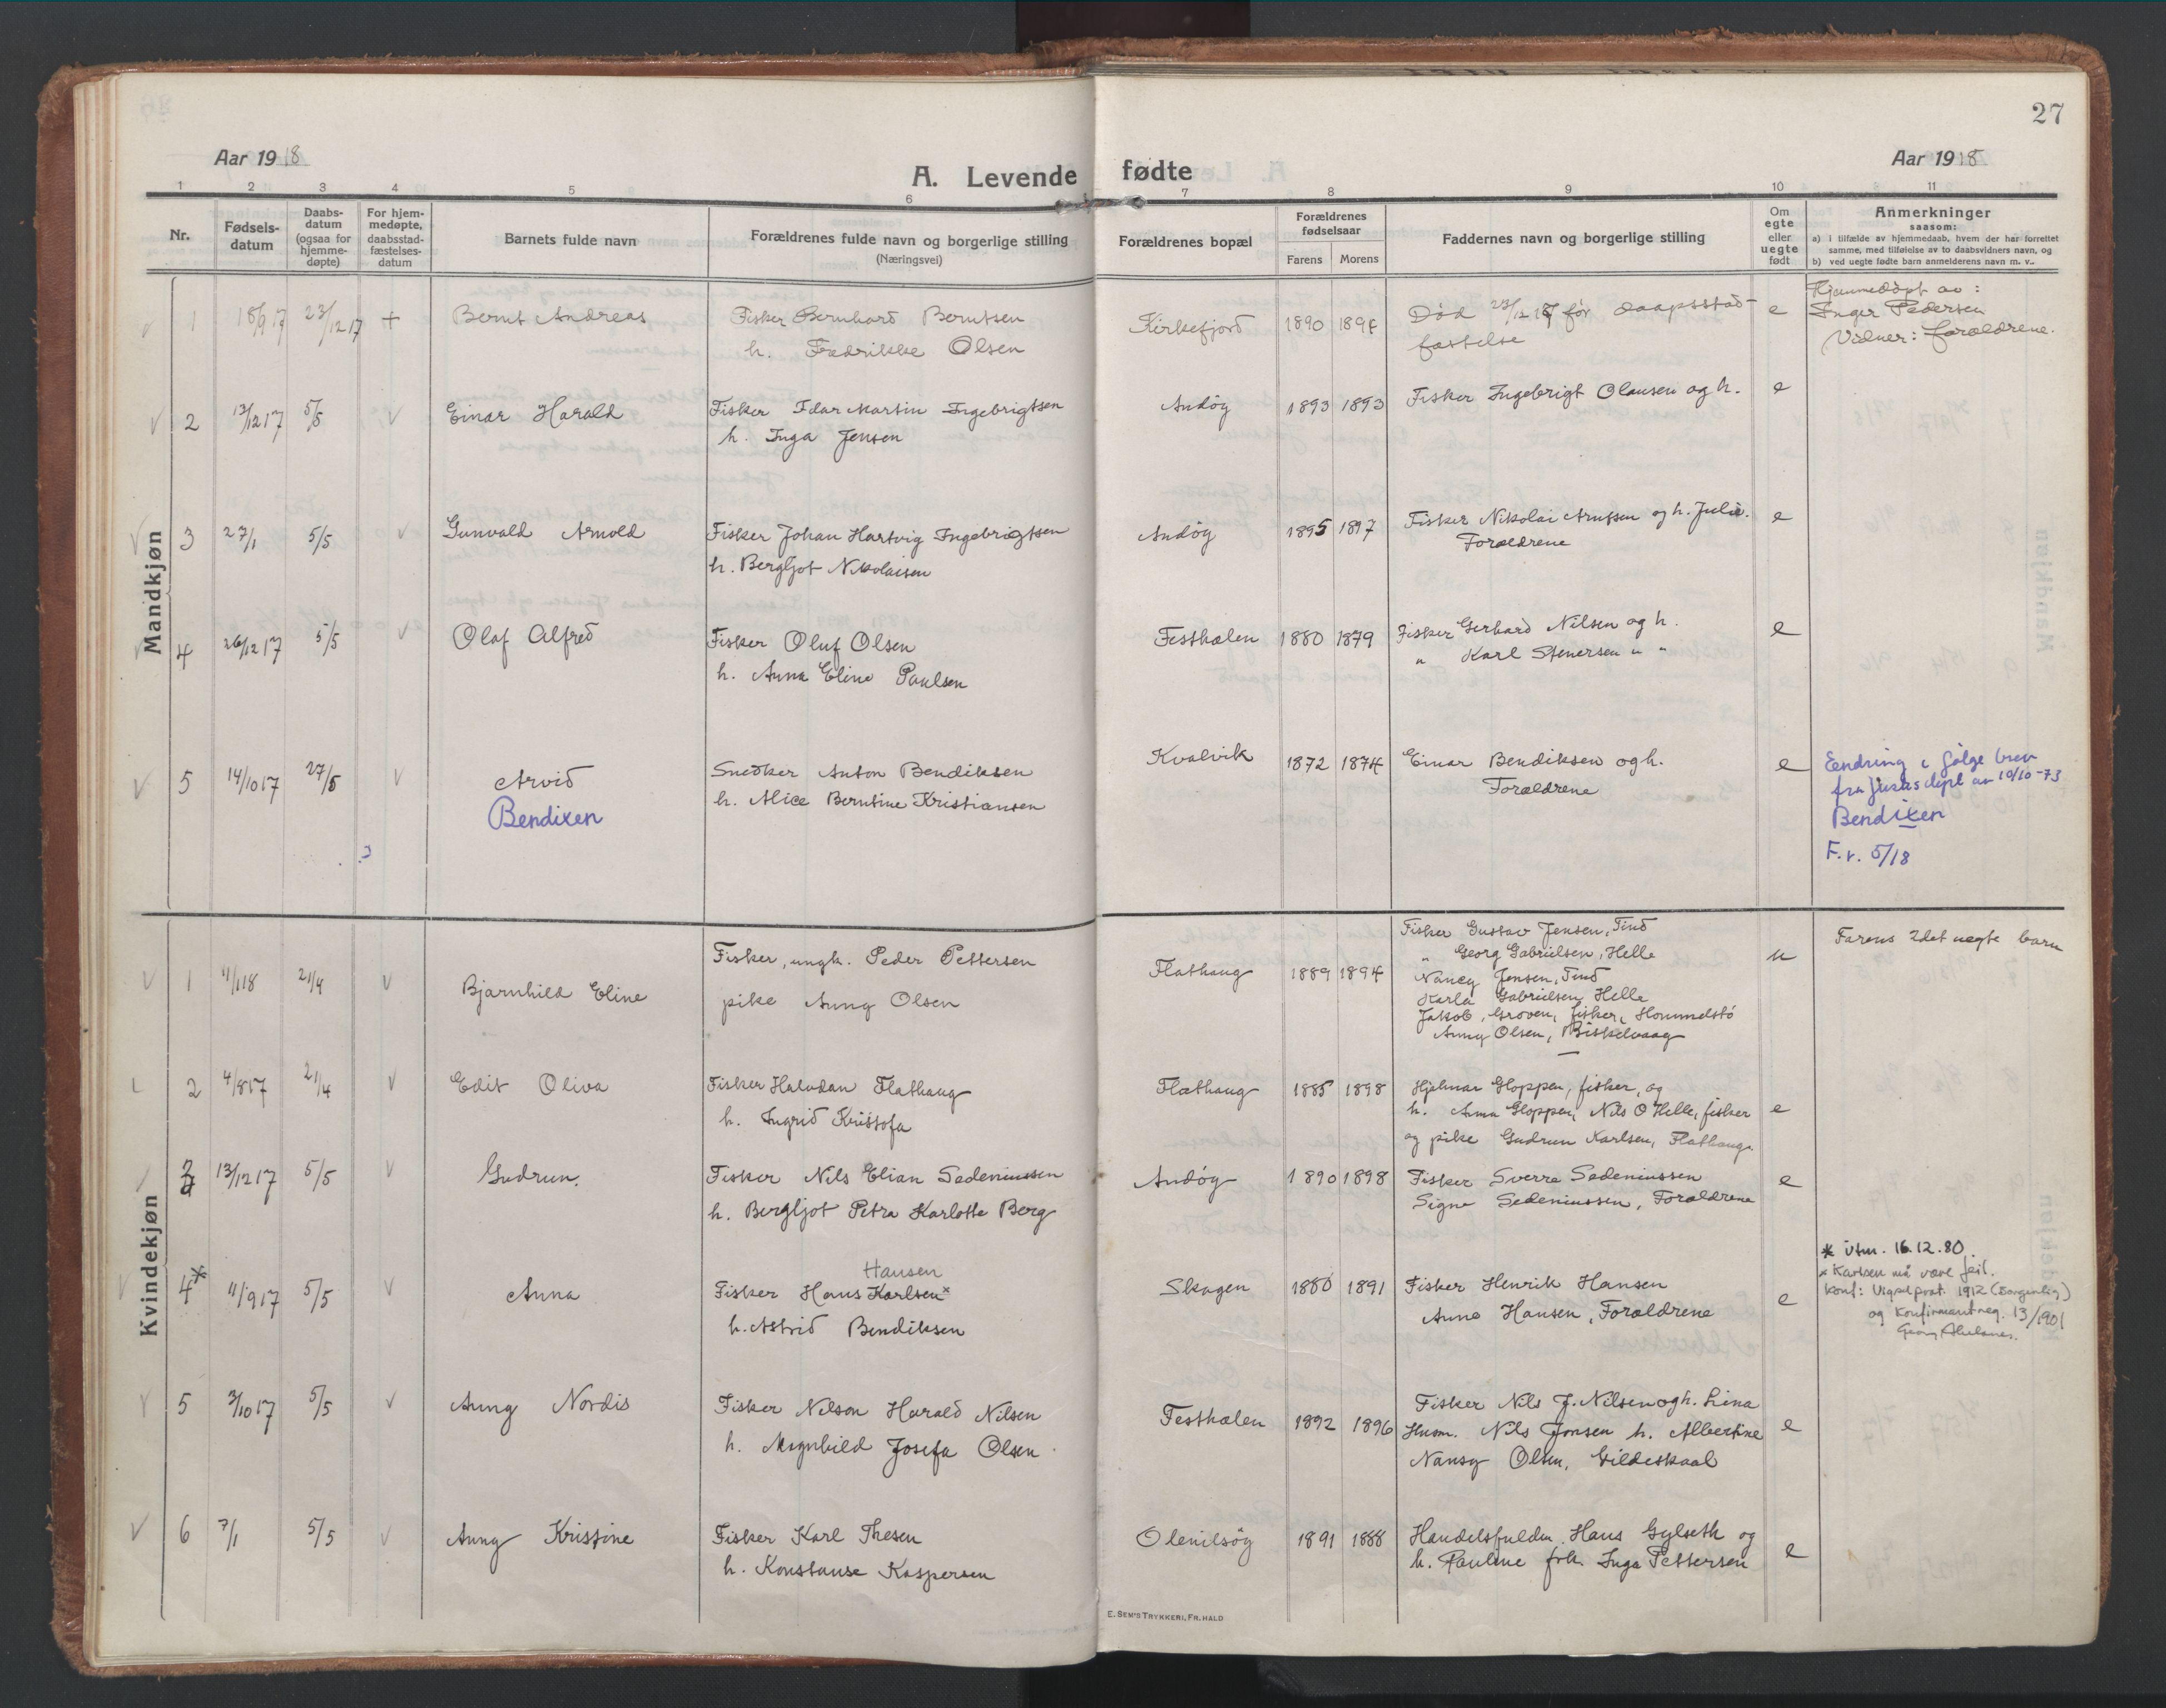 27
Aar 1918
A. Levende fødte
Aar 1918
1 2 3 4 5 6 7 8 9 10 11
Nr.
Fødsels-
datum
Daabs-
datum
(ogsaa for
hjemme-
døpte)
For hjem-
medøpte,
daabsstad-
fæstelses-
datum
Barnets fulde navn
Forældrenes fulde navn og borgerlige stilling
(Næringsvei)
Forældrenes bopæl
Forældrenes
fødselsaar
Farens Morens
Faddernes navn og borgerlige stilling
Om
egte
eller
uegte
født
Anmerkninger
saasom:
a) i tilfælde av hjemmedaab, hvem der har forrettet
samme, med tilføielse av to daabsvidners navn, og
b) ved uegte fødte barn anmelderens navn m. v.
Mandkjøn
1 18/9 17 23/12 17 + Bernt Andreas
Fisker Bernhard Berntsen
h. Fredrikke Olsen
Kirkefjord 1890 1894
Død 23/12 17 før daapsstad-
fæstelse
e
Hjemmedøpt av :
Inger Pedersen
Vidner: forældrene.
2 13/12 17 5/5 Einar Harald
Fisker Idar Martin Ingebrigtsen
h. Inga Jensen
Andøy 1893 1893
Fisker Ingebrigt Olausen og h.
e
3 27/1 5/5 Gunvald Arnold
Fisker Johan Hartvig Ingebrigtsen
h. Bergljot Nikolaisen
Andøy 1895 1897
Fisker Nikolai Arntsen og h. Julie.
Forældrene
e
4 26/12 17 5/5 Olaf Alfred
Fisker Oluf Olsen
h. Anna Eline Paulsen
Festhælen 1880 1879
Fisker Gerhard Nilsen og h.
" Karl Stenersen " "
e
5 14/10 17 27/5 Arvid
Bendixen
Snedker Anton Bendiksen
h. Alice Berntine Kristiansen
Kvalvik 1872 1874
Einar Bendiksen og h.
Forældrene
e
Endring i følge brev
fra Justisdept av 10/10-73
Bendixen
F.r. 5/18
Kvindekjøn
1 4/1 18 21/4 Bjarnhild Eline
Fisker, ungk. Peder Pettersen
pike Anny Olsen
Flathaug 1889 1894
Fisker Gustav Jensen, Tind
" Georg Gabrielsen, Helle
Nancy Jensen, Tind
Karla Gabrielsen Helle
Jakob Groven, fisker,
Anny Olsen,
u
Farens 2det uegte barn
2 4/8 17 21/4 Edit Oliva
Fisker Halvdan Flathaug
h. Ingrid Kristofa
Flathaug 1885 1898
Hjalmar Gloppen, fisker, og
h. Anna Gloppen, Nils O Helle, fisker
og pike Gudrun Karlsen, Flathaug
e
3 13/12 17 5/5 Gudrun.
Fisker Nils Elian Sedeniussen
h. Bergljot Petra Karlotte Berg
Andøy 1890 1898
Fisker Sverre Sedeniussen
Signe Sedeniussen, Forældrene
e
4* 11/9 17 5/5 Anna
Hansen
Fisker Hans Karlsen x
h. Astrid Bendiksen
Skagen 1880 1891
Fisker Henrik Hansen
Anna Hansen, Forældrene
e
* Utm. 16.12.80.
x Karlsen må være feil.
Konf: Vigselprot. 1912
og Konfirmantreg. 13/1901
5 3/10 17 5/5 Anny Nordis
Fisker Nelson Harald Nilsen
h. Magnhild Josefa Olsen
Festhælen 1892 1896
Fisker Nils J. Nilsen og h. Lina
Husm. Nils Jonsen h. Albertine
Nansy Olsen, Gildeskaal
e
6 7/1 5/5 Anny Kristine
Fisker Karl Thesen
h. Konstanse Kaspersen
Olenilsøy 1891 1888
Handelsfuldm. Hans Gylseth og
h. Pauline frk. Inga Pettersen
e
E. SEM'S TRYKKERI, FR. HALD